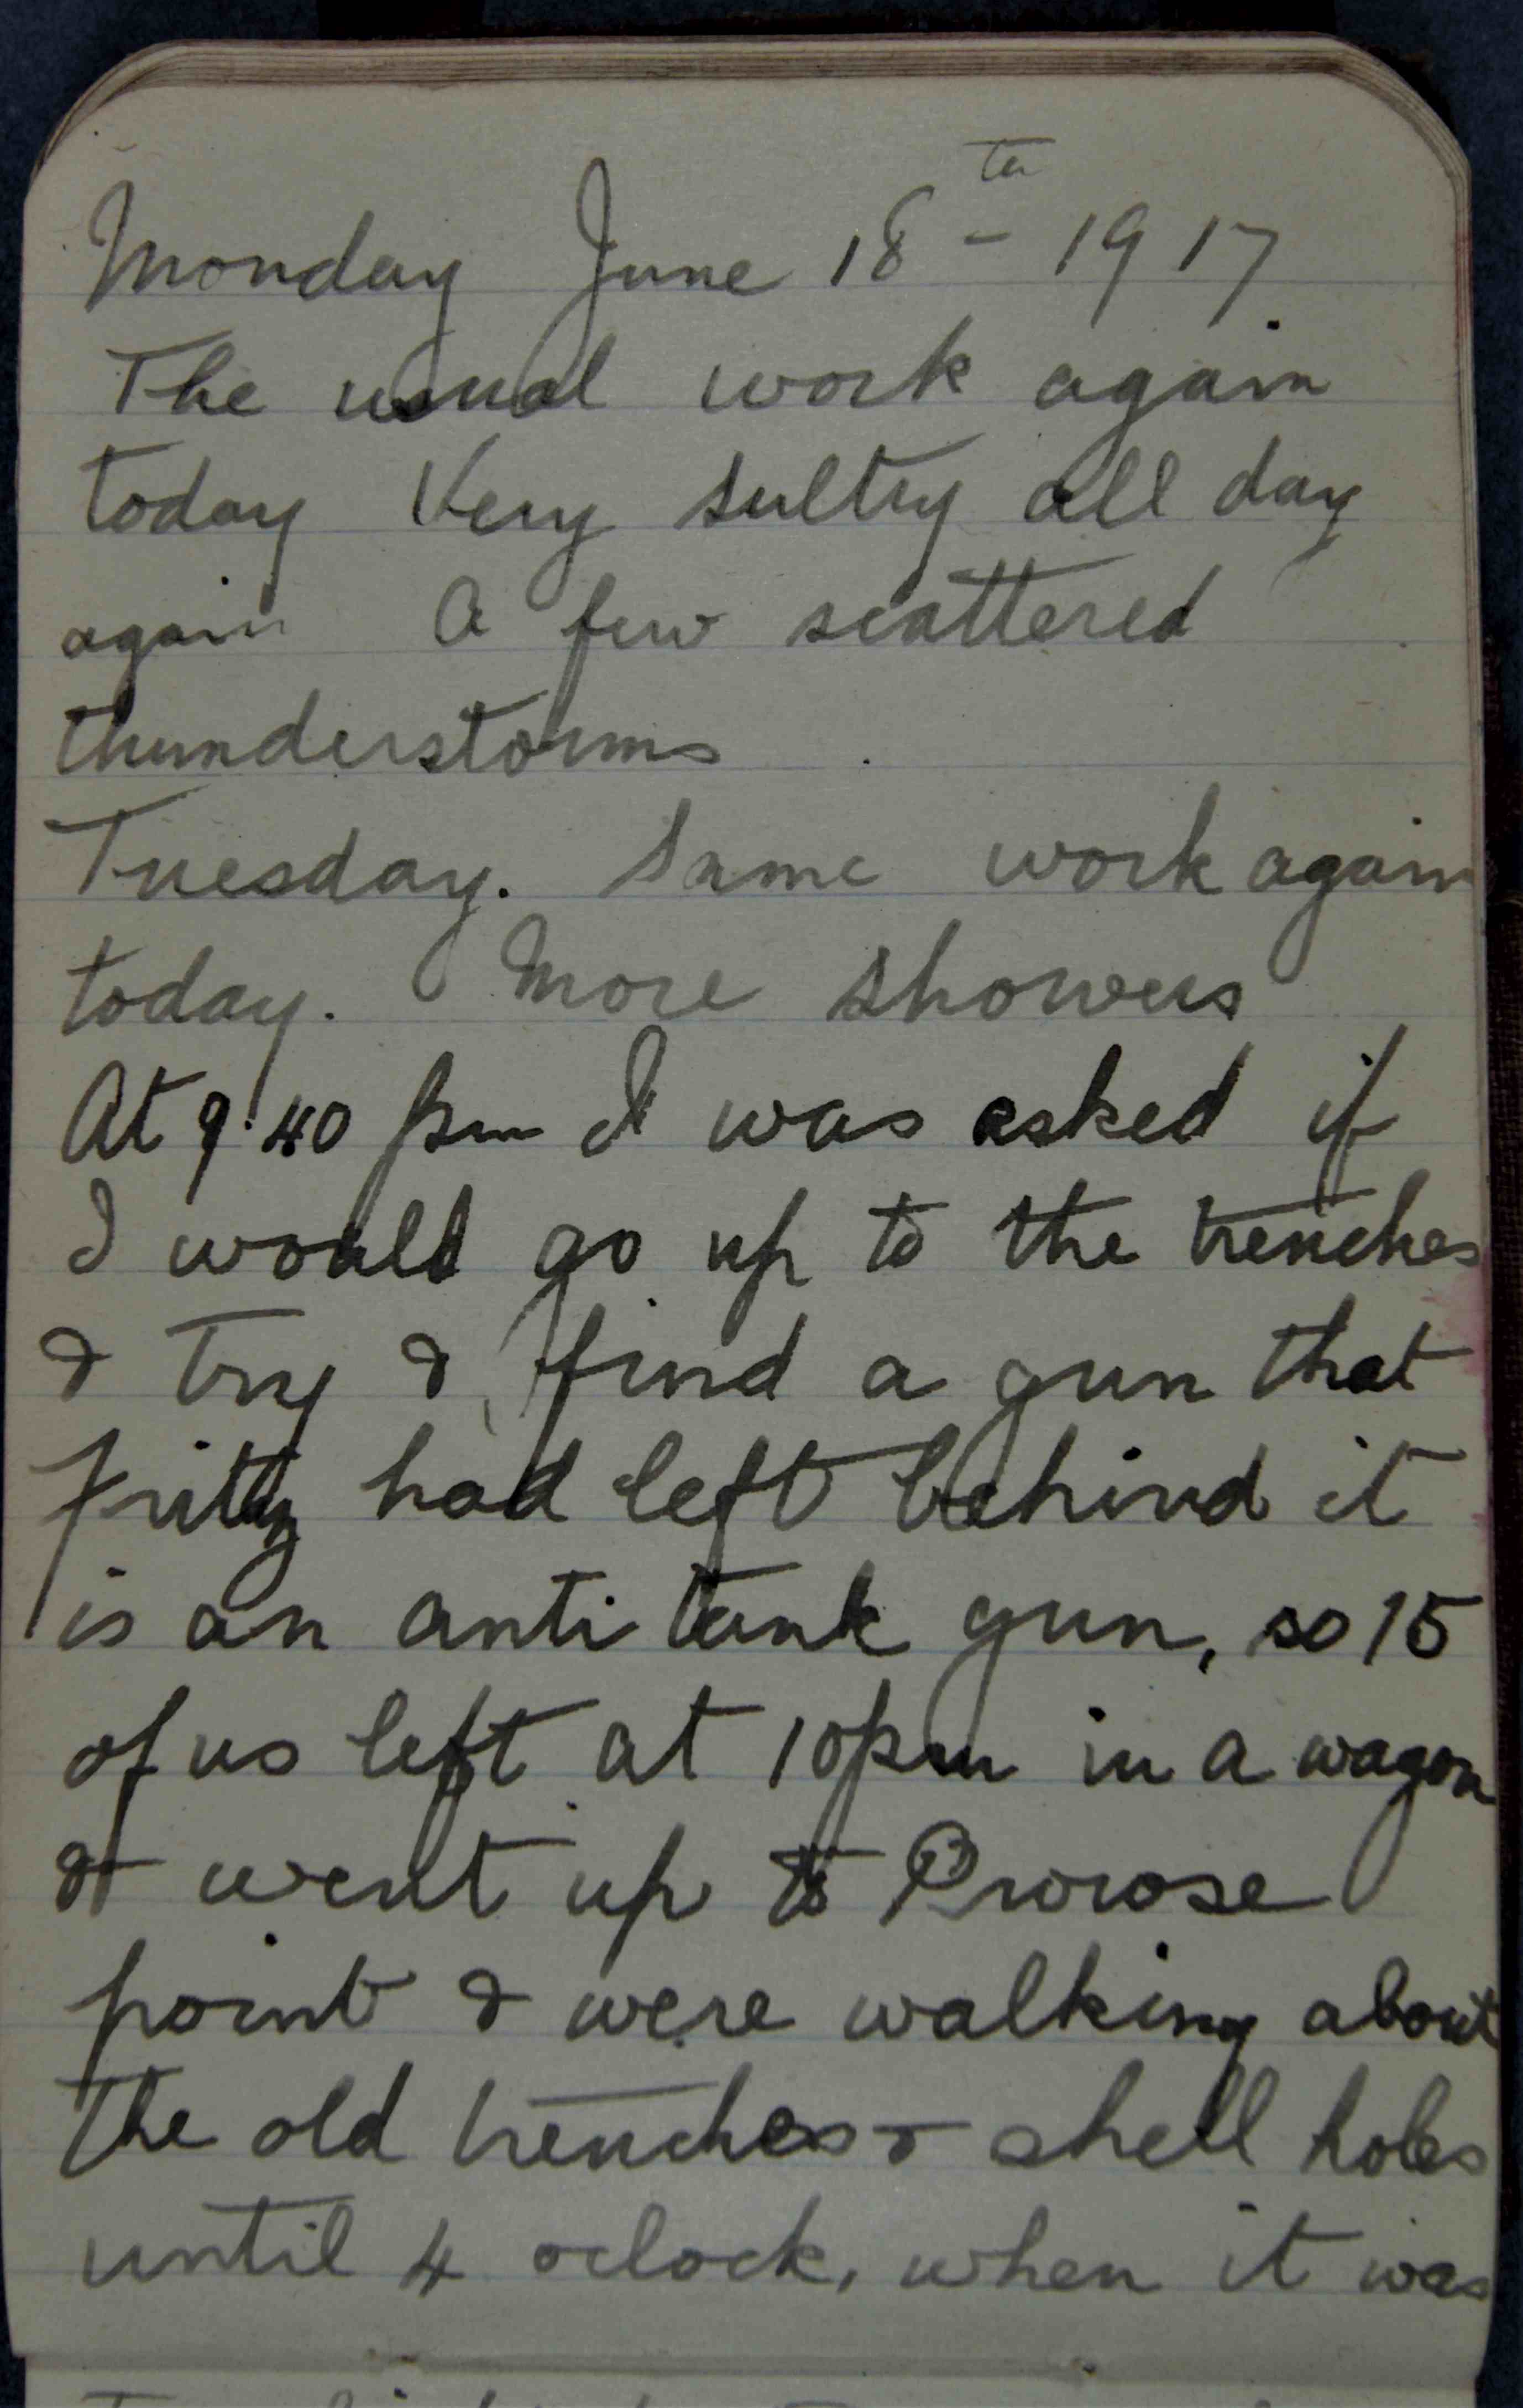 Monday June 18th 1917
The usual work again
today Very sultry all day
again A few scattered
thunderstorms
Tuesday. Same work again
today. More showers
At 9.40 pm I was asked if
I would go up to the trenches
& try & find a gun that
Fritz had left behind it
is an anti tank gun, so 15
of us left at 10pm in a wagon
& went up to Prowse
point & were walking about
the old trenches & shell holes
until 4 oclock, when it was